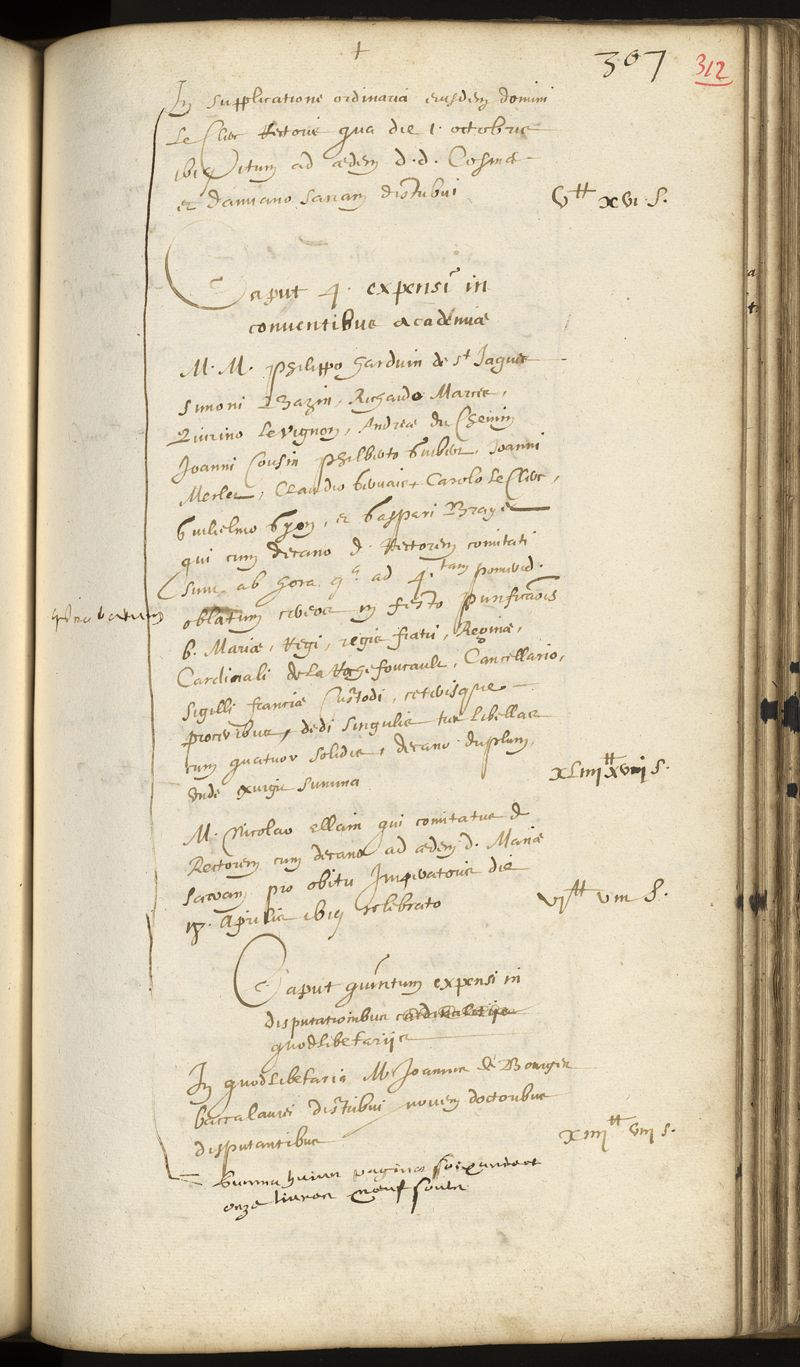 307 312
In supplicatione ordinaria eiusdem domini
Le Clerc Rectoris qua die 1. octobris
1619 itum ad ædem d.d. Cosmæ
et Damiano sacram distribui
V^tt xvi s.
Caput 4. expensi in
conventibus academiæ
M. M. Philippo harduin de s^t Jaques
Simoni Bazin, Richardo Marcer,
Quirino le Vignon, Andreæ du Chemin
Joanni Cousin Philberto Guibert, Joanni
Merlet, Claudio Gervaise, Carolo Le Clerc,
Guilielmo , et Gaspari Brayer
qui cum decano d. Rectorem comitati
sunt ab hora 9^a ad 4.^tam pomerid.
oblatum cereos in festo purificaõis
b. Mariæ, Regi, regis fratri, Reginæ,
Cardinali de la Rochefoucault, Cancellario,
Sigilli franciæ Custodi, ceterisque
proceribus, dedi singulis tres libellas
cum quatuor solidis, decano duplum,
unde exurgit summa
xLiiij^tt xviij s.
M. Nicolao ellain qui comitatus d
Rectorem cum decano ad ædem d. Mariæ
sacram pro obitu Imperatoris die
17. Aprilis 1619 celibrato
vj^tt viii s.
Caput quintum expensi in
disputationibus
quodlibetarijs
In quodlibetaria M. Joannis de Bourges
baccalaurei distribui novem doctoribus
disputantibus
xiiij^tt viij s.
Summa huius paginæ soixante et
onze livres neuf soulz